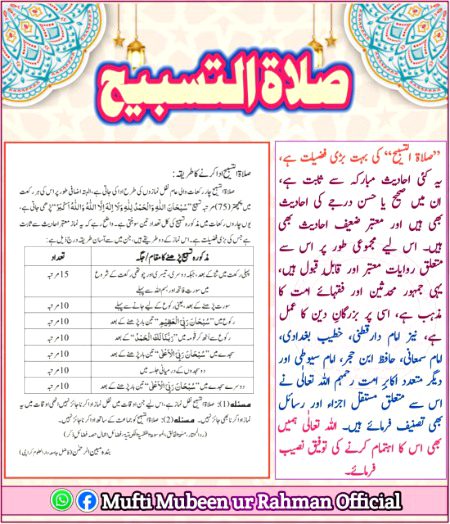 صلاۃ التسبیح
”صلاۃ التسبیح“ کی بہت بڑی فضیلت ہے،
یہ کئی احادیث مبارکہ سے ثابت ہے،
ان میں صحیح یا حسن درجے کی احادیث
بھی ہیں اور معتبر ضعیف احادیث بھی
ہیں۔ اس لیے مجموعی طور پر اس سے
متعلق روایات معتبر اور قابلِ قبول ہیں،
یہی جمہور محدثین اور فقہائے امت کا
مذہب ہے، اسی پر بزرگانِ دین کا عمل
ہے، نیز امام دارقطنی، خطیب بغدادی،
امام سمعانی، حافظ ابن حجر، امام سیوطی اور
دیگر متعدد اکابرِ امت رحمہم اللہ تعالیٰ نے
اس سے متعلق مستقل اجزاء اور رسائل
بھی تصنیف فرمائے ہیں۔ اللہ تعالیٰ ہمیں
بھی اس کا اہتمام کرنے کی توفیق نصیب
فرمائے۔
صلاۃ التسبیح ادا کرنے کا طریقہ:
صلاۃ التسبیح چار رکعات والی عام نفل نمازوں کی طرح ادا کی جاتی ہے، البتہ اضافی طور پر اس کی ہر رکعت
میں پچھتر (75) مرتبہ تسبیح ”سُبْحَانَ اللهِ وَالْحَمْدُ لِلّٰهِ وَلَا إِلٰهَ إِلَّا اللهُ وَاللهُ أَكْبَرُ“ پڑھی جاتی ہے،
یوں چاروں رکعات میں مذکورہ تسبیح کی کل تعداد تین سو بنتی ہے۔ واضح رہے کہ یہ نماز معتبر احادیث سے ثابت
ہے جس کی بڑی فضیلت ہے۔ اس نماز کے دو طریقے ہیں، جن میں سے آسان طریقہ درج ذیل ہے:
مذکورہ تسبیح پڑھنے کا مقام/جگہ تعداد
پہلی رکعت میں ثنا کے بعد، جبکہ دوسری، تیسری اور چوتھی رکعت کے شروع 15 مرتبہ
میں سورت فاتحہ اور بسم اللہ سے پہلے
سورت کے بعد، یعنی رکوع کے لیے جانے سے پہلے 10 مرتبہ
رکوع میں ”سُبْحَانَ رَبِّيَ الْعَظِيمِ“ تین بار پڑھنے کے بعد 10 مرتبہ
رکوع سے اٹھ کر قومہ میں ”رَبَّنَا لَكَ الْحَمْدُ“ کے بعد 10 مرتبہ
سجدے میں ”سُبْحَانَ رَبِّيَ الْأَعْلٰى“ تین بار پڑھنے کے بعد 10 مرتبہ
دو سجدوں کے درمیانی جلسہ میں 10 مرتبہ
دوسرے سجدے میں ”سُبْحَانَ رَبِّيَ الْأَعْلٰى“ تین بار پڑھنے کے بعد 10 مرتبہ
مسئلہ (1): صلاۃ التسبیح نفل نماز ہے، اس لیے جن اوقات میں نفل نماز ادا کرنا جائز نہیں انھی اوقات میں یہ
نماز ادا کرنا بھی جائز نہیں۔ مسئلہ (2): صلاۃ التسبیح کو جماعت کے ساتھ ادا کرنا جائز نہیں۔
Mufti Mubeen ur Rahman Official